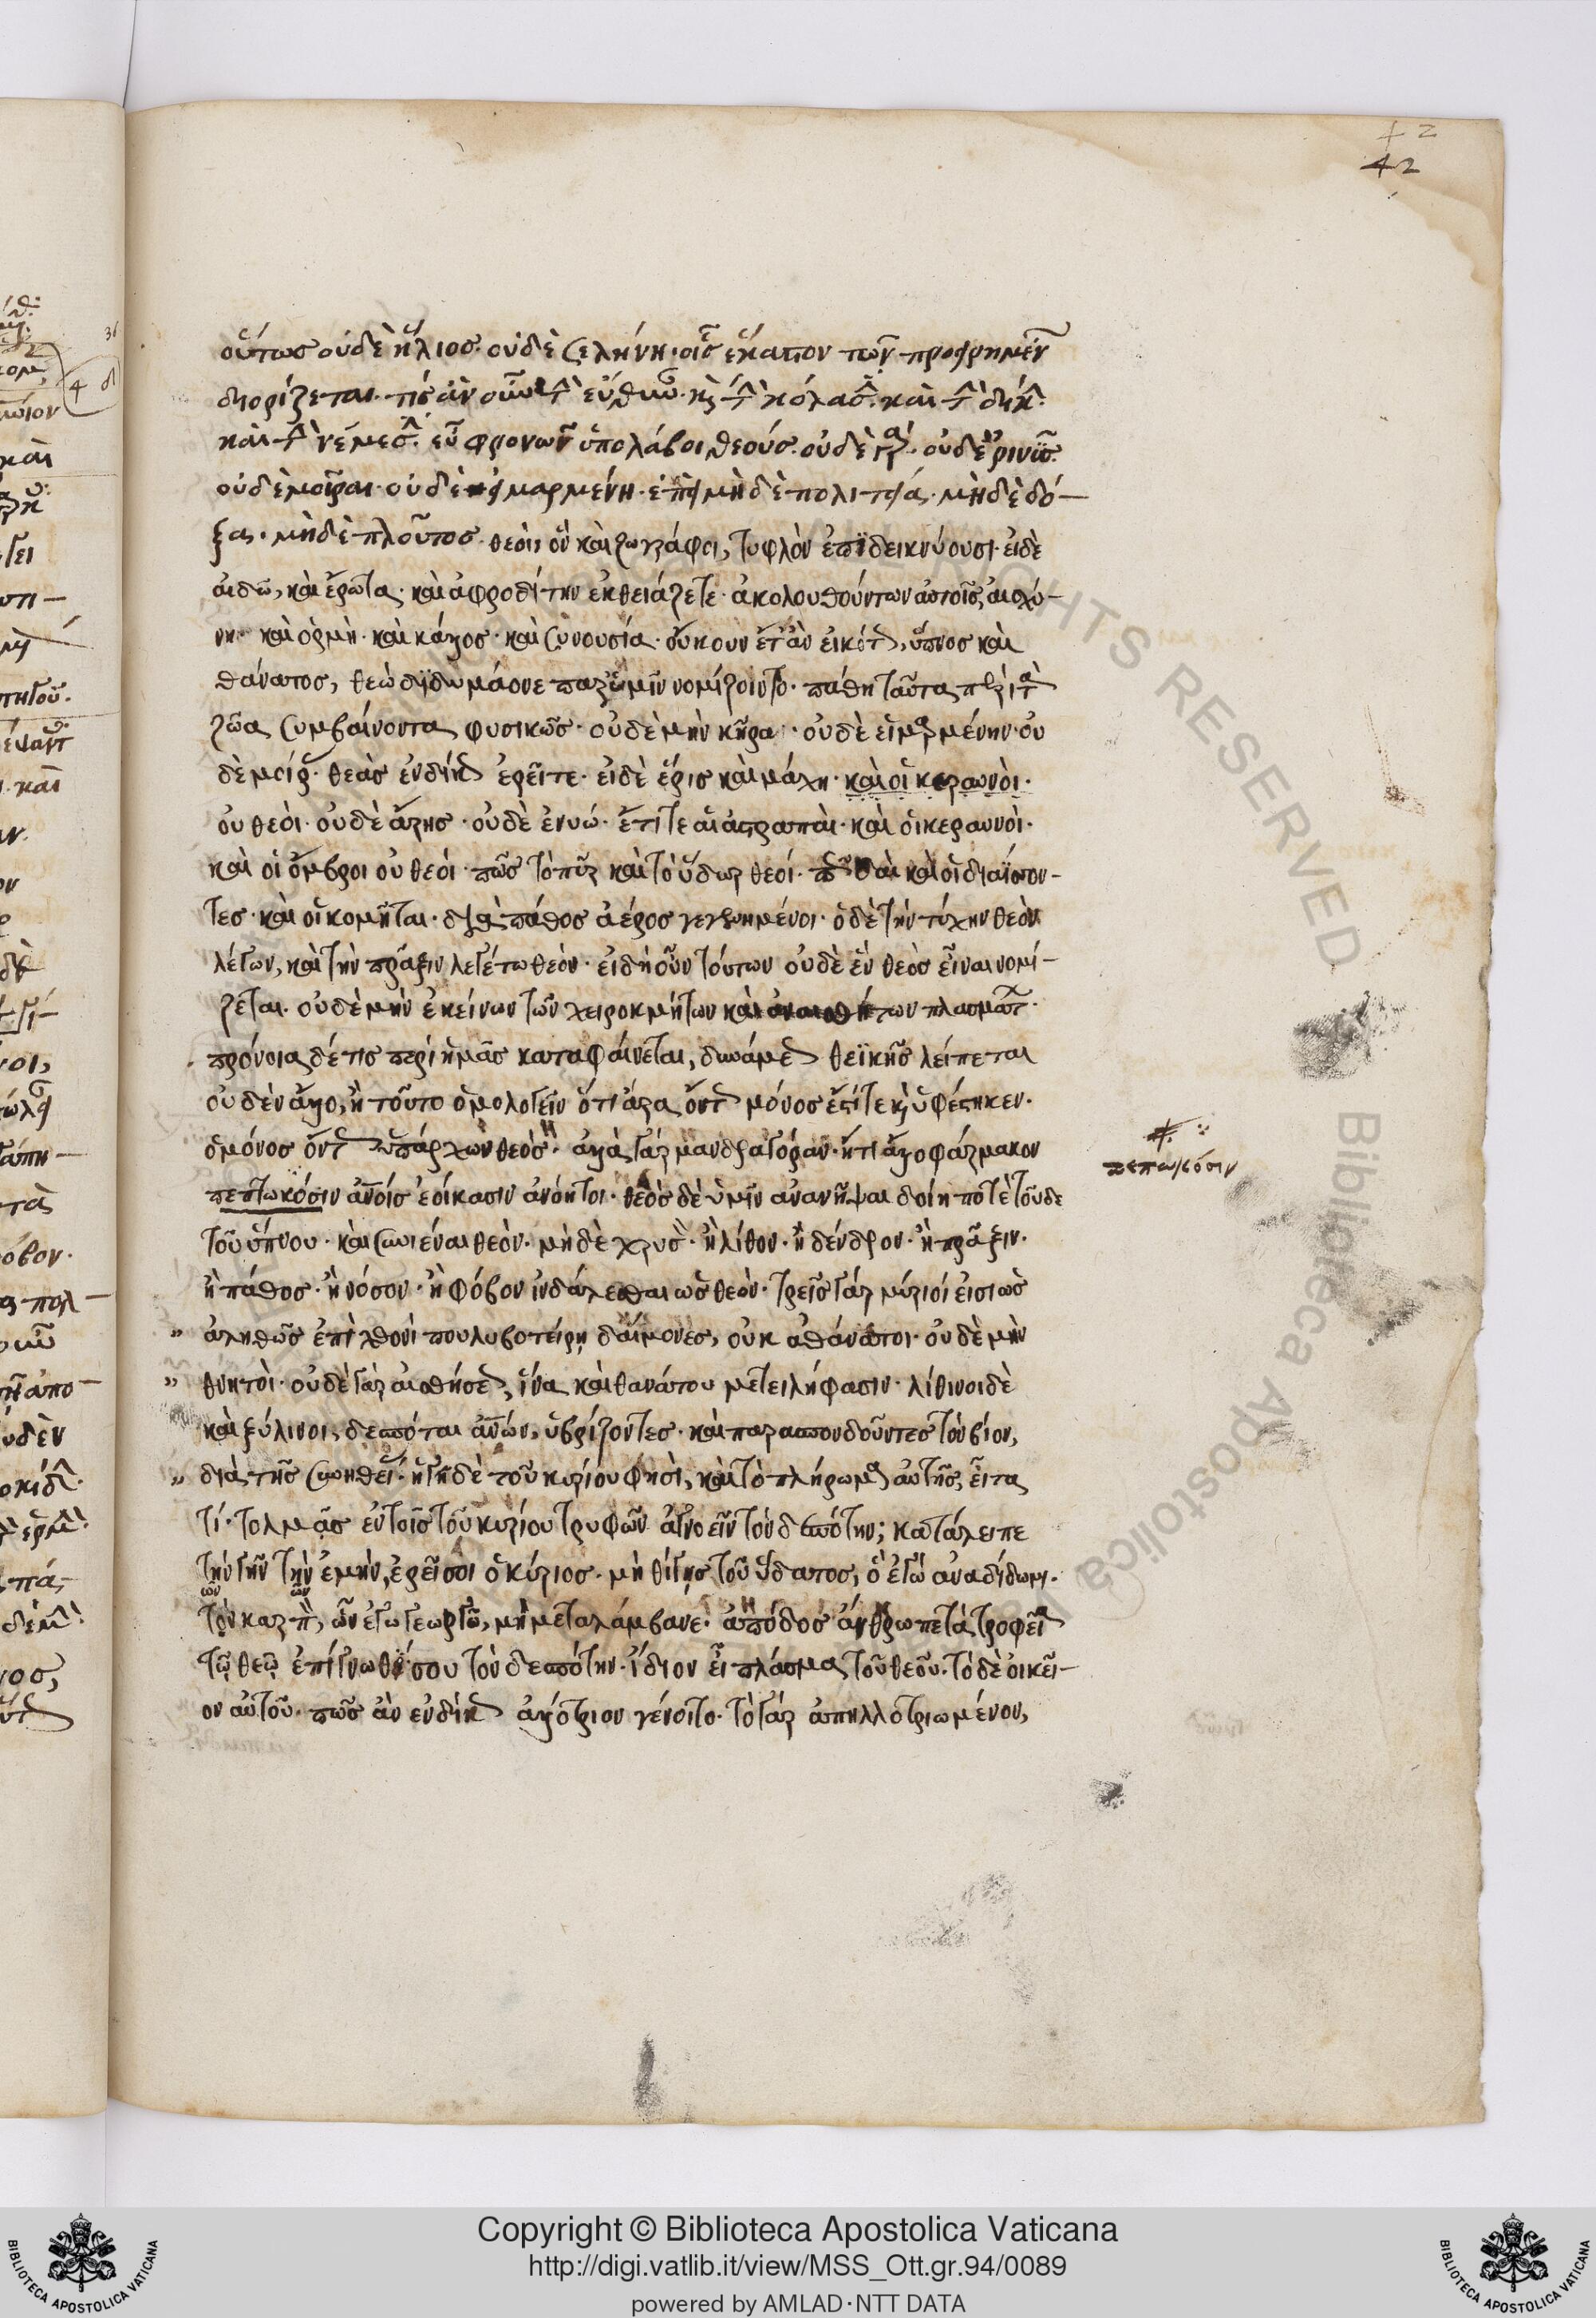 42
42
οὕτως οὐδὲ ἥλιος. οὐδὲ σελήνη. οἷς ἕκαστον τῶν προειρημένων
διορίζεται. τίς ἂν οὖν τὴν εὔθυναν. καὶ τὴν κόλασιν. καὶ τὴν δίκην.
καὶ τὴν νέμεσιν. εὖ φρονῶν ὑπολάβοι θεούς. οὐδὲ γάρ. οὐδ' ἐρινύες.
οὐδὲ μοῖραι. οὐδὲ εἱμαρμένη. ἐπεὶ μηδὲ πολιτεία. μηδὲ δό-
ξα. μηδὲ πλοῦτος. θεοί, ὃν καὶ ζωγράφοι, τυφλὸν ἐπιδεικνύουσι. εἰ δὲ
αἰδῶ, καὶ ἔρωτα. καὶ ἀφροδίτην ἐκθειάζετε. ἀκολουθούντων αὐτοῖς, αἰσχύ-
νη. καὶ ὁρμὴ. καὶ κάλλος. καὶ συνουσία. οὔκουν ἔτ' ἂν εἰκότως, ὕπνος καὶ
θάνατος, θεὼ διδυμάονε παρ' ὑμῖν νομίζοιντο. πάθη ταῦτα περὶ τὰ
ζῶα συμβαίνοντα φυσικῶς. οὐδὲ μὴν κῆρα. οὐδὲ εἱμαρμένην. οὐ
δὲ μοίρας. θεὰς ἐνδίκως ἐρεῖτε. εἰ δὲ ἔρις καὶ μάχη. καὶ οἱ κεραυνοὶ.
οὐ θεοί. οὐδὲ ἄρης. οὐδὲ ἐνυώ. ἔτι τε αἱ ἀστραπαὶ. καὶ οἱ κεραυνοὶ.
καὶ οἱ ὄμβροι οὐ θεοί. πῶς τὸ πῦρ καὶ τὸ ὕδωρ θεοί. πῶς δαὶ καὶ οἱ διαΐσσον-
τες. καὶ οἱ κομῆται. διὰ πάθος ἀέρος γεγενημένοι. ὁ δὲ τὴν τύχην θεὸν
λέγων, καὶ τὴν πρᾶξιν λεγέτω θεόν. εἰ δὴ οὖν τούτων οὐδὲ ἓν θεὸς εἶναι νομί-
ζεται. οὐδὲ μὴν ἐκείνων τῶν χειροκμήτων καὶ ἀναισθήτων πλασμάτων.
πρόνοια δέ τις περὶ ἡμᾶς καταφαίνεται, δυνάμεως θεϊκῆς λείπεται
οὐδὲν ἄλλο, ἢ τοῦτο ὁμολογεῖν ὅτι ἄρα ὄντως μόνος ἔστί τε καὶ ὑφέστηκεν.
ὁ μόνος ὄντως ὑπάρχων θεός. ἀλλὰ γὰρ μανδραγόραν. ἤ τι ἄλλο φάρμακον
πεπτωκόσιν ἀνοῖς ἐοίκασιν ἀνόητοι. θεὸς δὲ ὑμῖν ἀνανῆψαι δοίη ποτὲ τοῦδε
τοῦ ὕπνου. καὶ συνιέναι θεόν. μηδὲ χρυσὸν. ἢ λίθον. ἢ δένδρον. ἢ πρᾶξιν.
ἢ πάθος. ἢ νόσον. ἢ φόβον ἰνδάλλεσθαι ὡς θεόν. τρεῖς γὰρ μύριοί εἰσι ὡς
" ἀληθῶς ἐπὶ χθονὶ πουλυβοτείρῃ δαίμονες, οὐκ ἀθάνατοι. οὐδὲ μὴν
" θνητοί. οὐδὲ γὰρ αἰσθήσεως, ἵνα καὶ θανάτου μετειλήφασιν. λίθινοι δὲ
καὶ ξύλινοι, δεσπόται ἀνῶν, ὑβρίζοντες. καὶ παρασπονδοῦντες τὸν βίον,
" διὰ τῆς συνηθείας. ἡ γῆ δὲ τοῦ κυρίου φησὶ, καὶ τὸ πλήρωμα αὐτῆς, εἶτα
τί. τολμᾷς ἐν τοῖς τοῦ κυρίου τρυφῶν ἀγνοεῖν τὸν δεσπότην; κατάλειπε
τὴν γῆν τὴν ἐμήν, ἐρεῖ σοι ὁ κύριος. μὴ θίγῃς τοῦ ὕδατος, ὃ ἐγὼ ἀναδίδωμι.
τὸν καρπὸν, ὧν ἐγὼ γεωργῶ, μὴ μεταλάμβανε. ἀπόδος ἄνθρωπε τὰ τροφεῖα
τῷ θεῷ ἐπίγνωθί σου τὸν δεσπότην. ἴδιον εἶ πλάσμα τοῦ θεοῦ. τὸ δὲ οἰκεῖ-
ον αὐτοῦ. πῶς ἂν ἐνδίκως ἀλλότριον γένοιτο. τὸ γὰρ ἀπηλλοτριωμένον,
πεπωκόσιν
ALL RIGHTS RESERVED
Biblioteca Apostolica
Copyright © Biblioteca Apostolica Vaticana
http://digi.vatlib.it/view/MSS_Ott.gr.94/0089
powered by AMLAD·NTT DATA
BIBLIOTECA APOSTOLICA VATICANA
BIBLIOTECA APOSTOLICA VATICANA